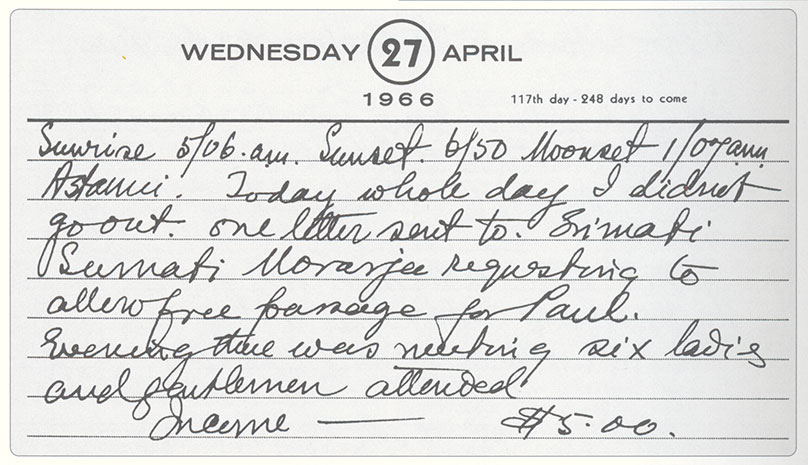 WEDNESDAY 27 APRIL
1966 117th day - 248 days to come
Sunrise 5/06. a.m. Sunset. 6/50 Moonset 1/07 a.m.
Astami. Today whole day I didnot
go out. one letter sent to. Srimati
Sumati Morarjee requesting to
allow free passage for Paul.
Evening there was meeting six ladies
and gentlemen attended
Income — $5.00.